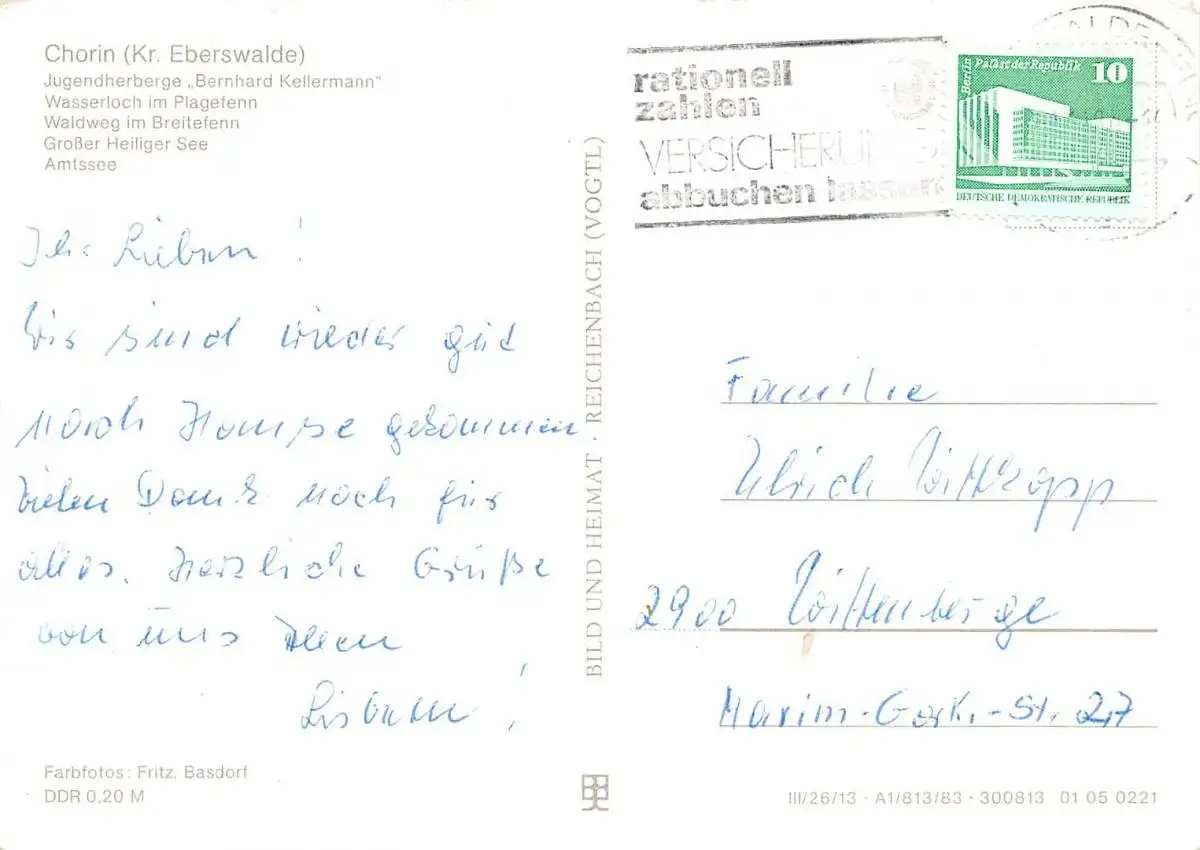 Chorin (Kr. Eberswalde)
Jugendherberge „Bernhard Kellermann"
Wasserloch im Plagefenn
Waldweg im Breitefenn
Großer Heiliger See
Amtssee
Ihr Lieben!
Wir sind wieder gut
nach Hause gekommen
vielen Dank noch für
alles. Herzliche Grüße
von uns allen
Farbfotos: Fritz, Basdorf
DDR 0,20 M
BILD UND HEIMAT · REICHENBACH (VOGTL)
rationell
zahlen
VERSICHERUNG
abbuchen lassen
Berlin Palast der Republik 10
DEUTSCHE DEMOKRATISCHE REPUBLIK
Familie
Ulrich Wittkopp
2900 Wittenberge
Maxim-Gork.-St. 27
III/26/13 · A1/813/83 · 300813 01 05 0221